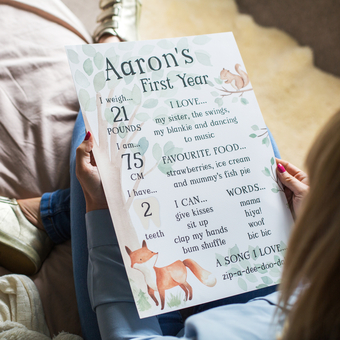 Aaron's
First Year
I weigh...
21
POUNDS
I am...
75
CM
I have...
2
teeth
I LOVE...
my sister, the swings,
my blankie and dancing
to music
FAVOURITE FOOD...
strawberries, ice cream
and mummy's fish pie
I CAN...
give kisses
sit up
clap my hands
bum shuffle
WORDS...
mama
hiya!
woof
bic bic
A SONG I LOVE
zip-a-dee-doo-do